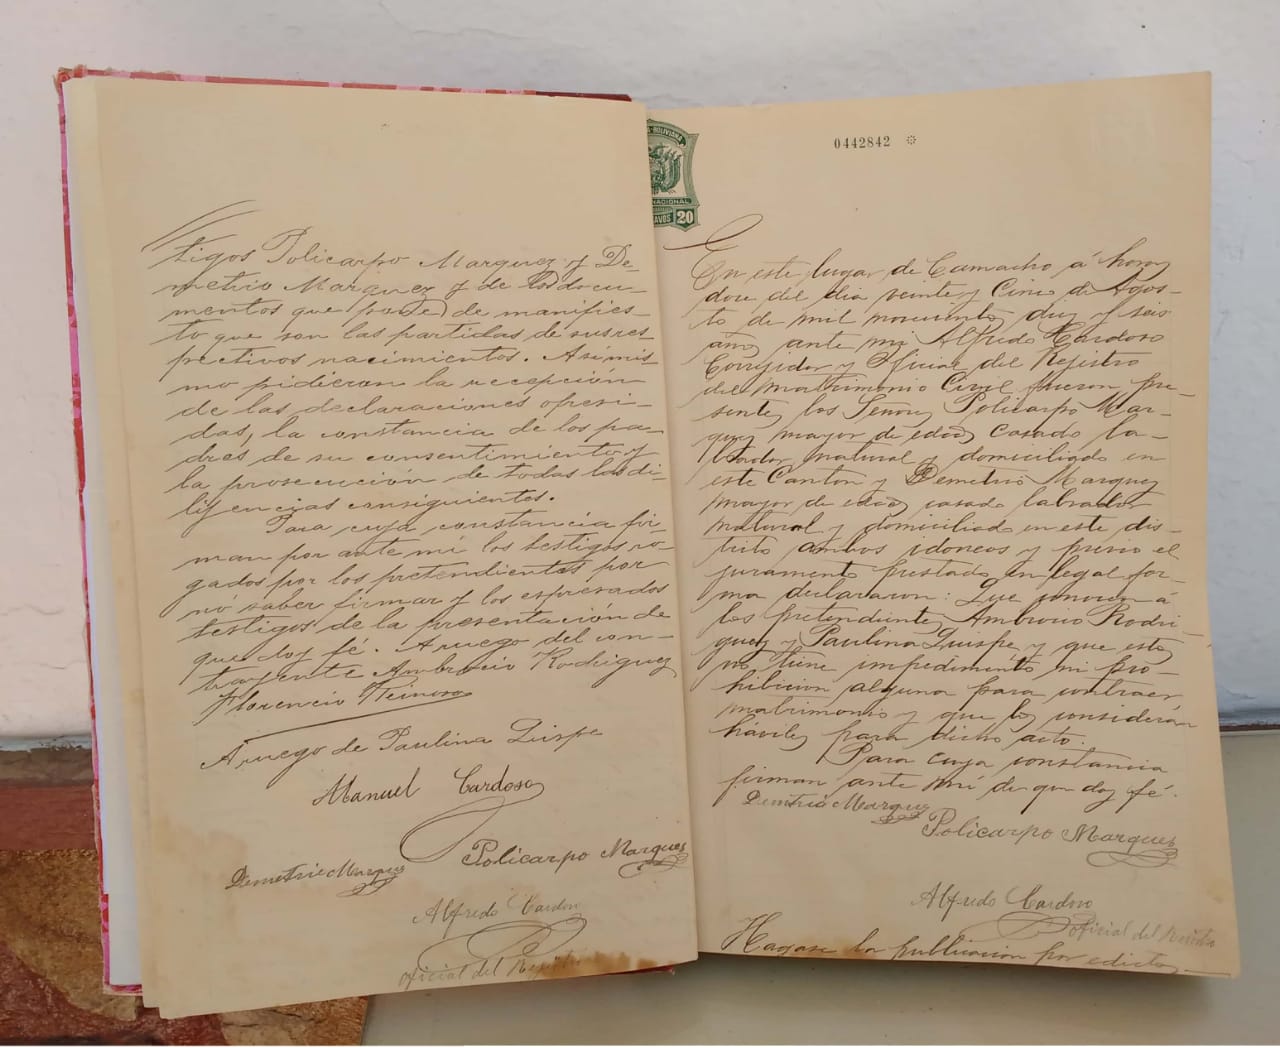 tigos Policarpo Marquez y De-
metrio Marquez y de los docu-
mentos que pone de manifies-
to que son las partidas de sus res-
pectivos nacimientos. Asimis-
mo pidieron la recepción
de las declaraciones ofreci-
das, la constancia de los pa-
dres de su consentimiento y
la prosecución de todas las di-
lijencias consiguientes.
Para cuya constancia fir-
man por ante mi los testigos ro-
gados por los pretendientes por
nó saber firmar y los espresados
testigos de la presentación de
que doy fé. A ruego del con-
trayente Ambrocio Rodriguez
Florencio
A ruego de Paulina Quispe
Manuel Cardoso
Policarpo Marques
Demetrio Marques
Alfredo Cardoso
oficial del Registro
BOLIVIANA
NACIONAL
20
0442842
En este lugar de Camacho á horas
doce del dia veinte y cinco de Agos-
to de mil novecientos diez y seis
años ante mi Alfredo Cardoso
Corrijidor y Oficial del Rejistro
del Matrimonio Civil fueron pre-
sentes los Señores Policarpo Mar-
quez mayor de edad casado la-
brador natural y domiciliado en
este Canton y Demetrio Marquez
mayor de edad casado labrador
natural y domiciliado en este dis-
trito ambos idoneos y previo el
juramento prestado en legal for-
ma declararon: Que conocen á
los pretendientes Ambrocio Rodri-
guez y Paulina Quispe y que estos
no tiene impedimento ni pro-
hibicion alguna para contraer
matrimonio y que los consideran
háviles para dicho acto.
Para cuya constancia
firman ante mí de que doy fé.
Demetrio Marques
Policarpo Marques
Alfredo Cardoso
oficial del Rejistro
Hagase la publicacion por edictos